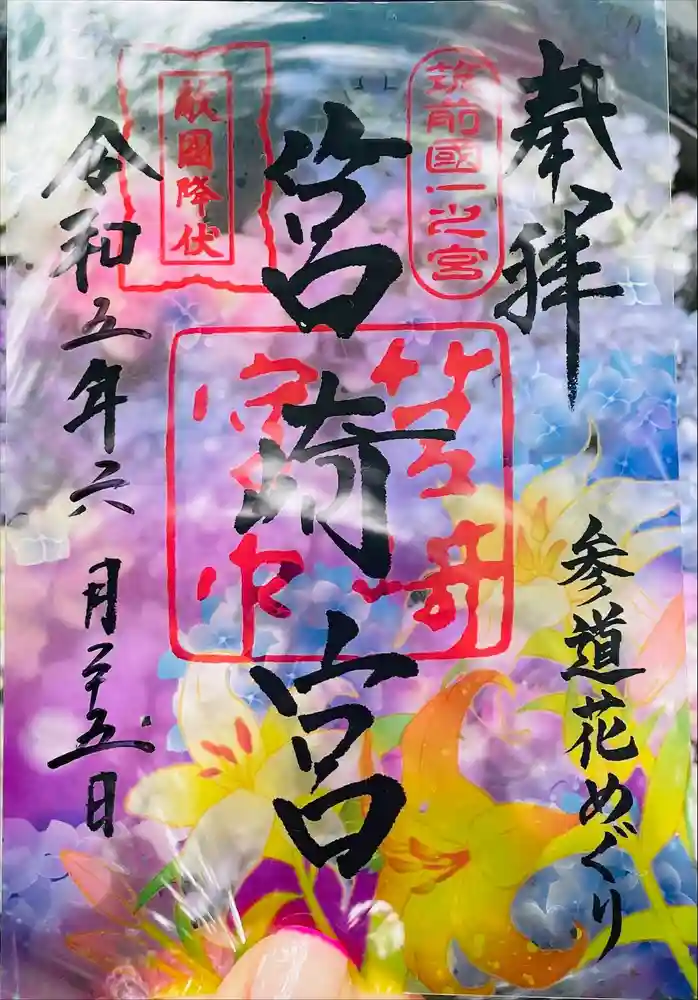 奉拝
参道花めぐり
筑前國一之宮
筥崎宮
敵国降伏
令和五年六月二十五日